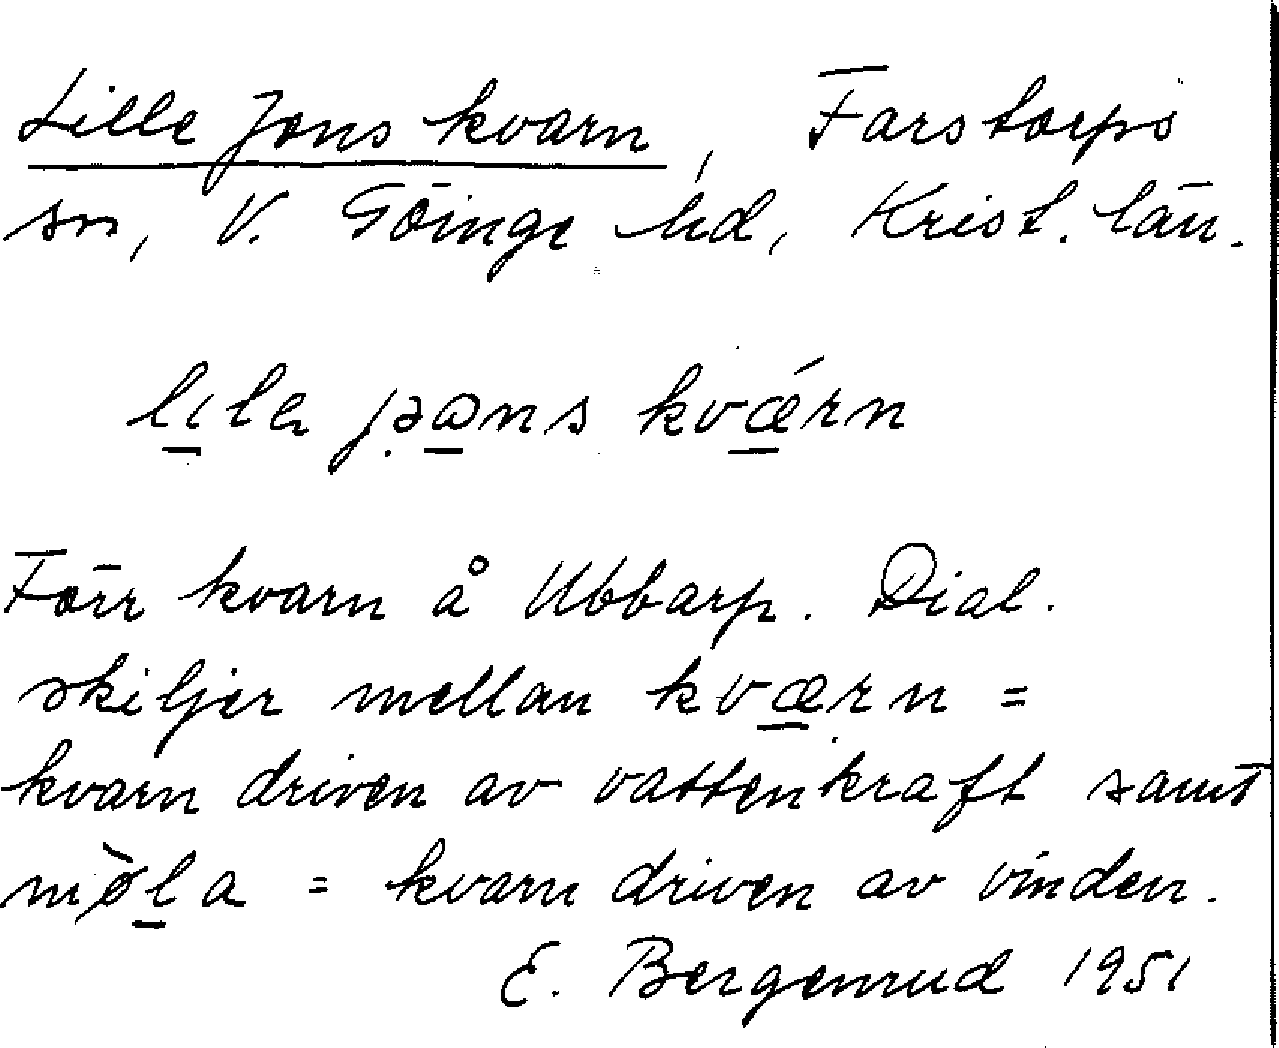 Lille Jons kvarn, Farstorps
sn, V. Göinge hd, Krist. län.
lıla jəɷns kvǽrn
Förr kvarn å Ubbarp. Dial.
skiljer mellan kværn =
kvarn driven av vattenkraft samt
mø̀la = kvarn driven av vinden.
E. Bergenrud 1951